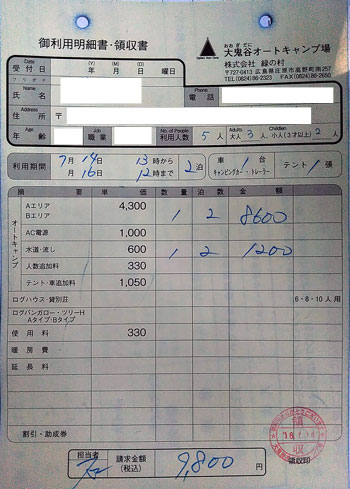 御利用明細書・領収書
おおぎだに
大鬼谷オートキャンプ場
株式会社 緑の村
〒727-0413 広島県庄原市高野町南257
TEL(0824)86-2323 FAX(0824)86-2650
Date (Y) (M) (D)
受付日 年 月 日 曜日
フリガナ
Name
氏名
Phone
電話
Address
住所 〒
Age
年齢
Job
職業
No. of People
利用人数 5人
Adults
大人 3人
Children
小人(3才以上) 2人
利用期間
7月14日 13時から
7月16日 12時まで
2泊
車 1台
キャンピングカー・トレーラー
テント 1張
摘要 単価 数量 泊数 金額
オートキャンプ
Aエリア 4,300
Bエリア 1 2 8600
AC電源 1,000
水道・流し 600 1 2 1200
人数追加料 330
テント・車追加料 1,050
ログハウス・貸別荘 6・8・10人用
ログバンガロー・ツリーH
Aタイプ・Bタイプ
使用料 330
暖房費
延長料
割引・助成券
領収
領収印
担当者
請求金額
(税込)
9,800円